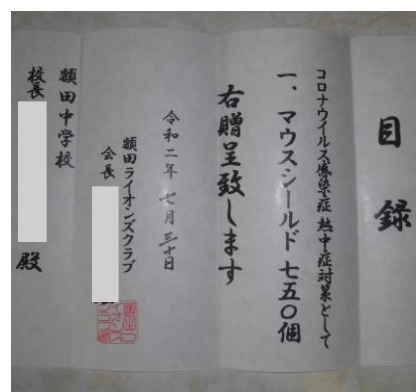 目録
コロナウイルス感染症 熱中症対策として
一、マウスシールド 七五〇個
右贈呈致します
令和二年 七月三十日
額田ライオンズクラブ
会長
額田中学校
校長 殿